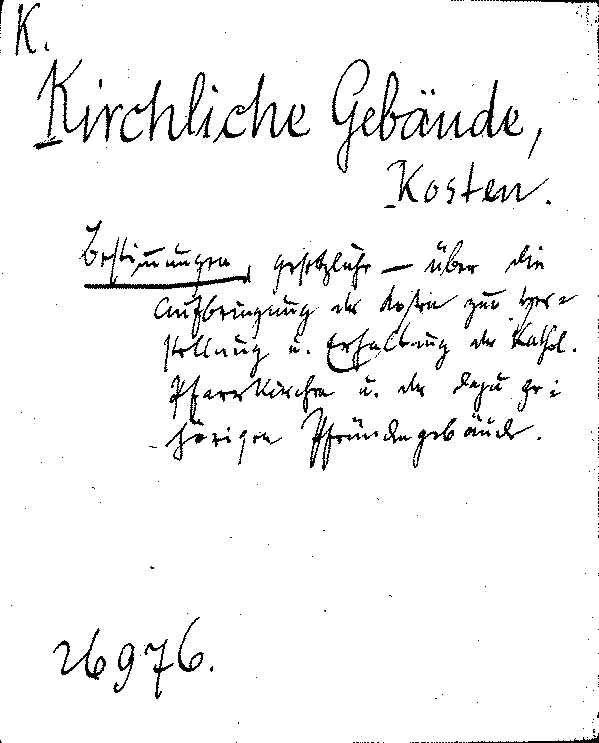 K.
Kirchliche Gebäude,
Kosten.
Bestimmungen, gesetzliche — über die
Aufbringung der Kosten zur Her=
stellung u. Erhaltung der kathol.
Pfarrkirchen u. der dazu ge=
hörigen Pfründengebäude.
26976.